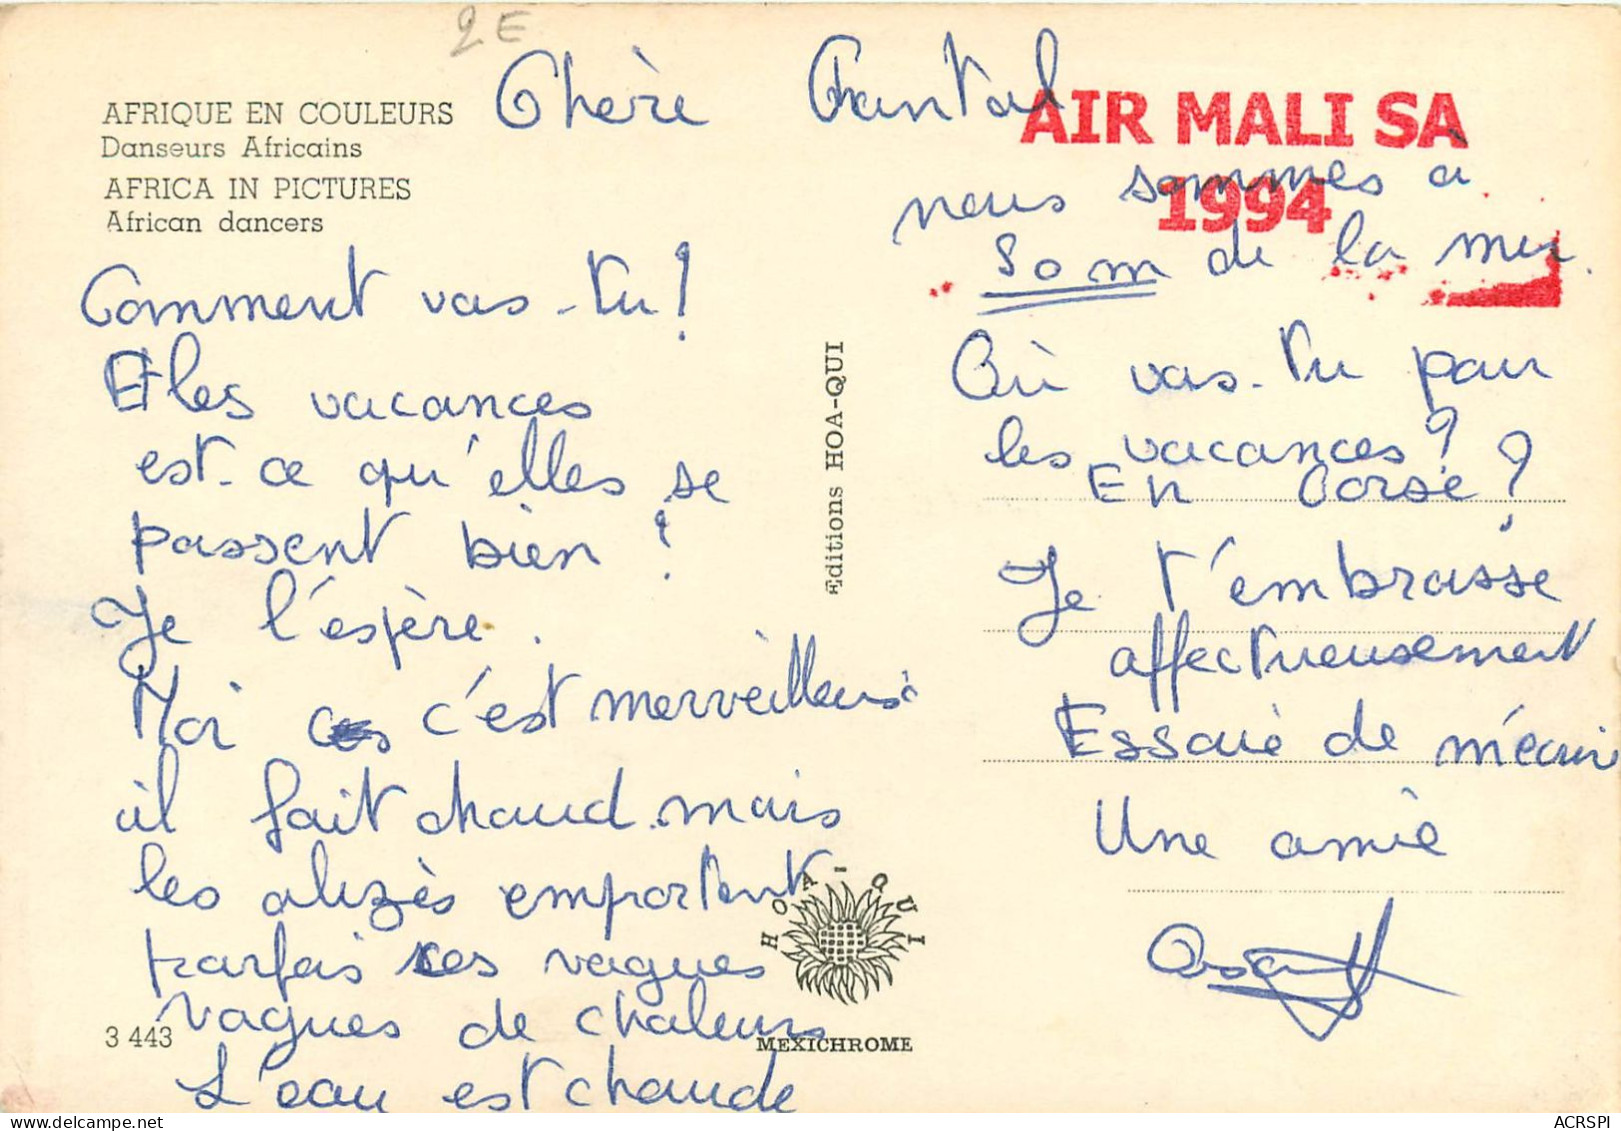 2 E
AFRIQUE EN COULEURS
Danseurs Africains
AFRICA IN PICTURES
African dancers
Chère Chantal
Comment vas-tu?
Et les vacances
est-ce qu'elles se
passent bien?
Je l'espère.
Moi c'est merveilleux
il fait chaud mais
les alizès emportent
parfois ces vagues
vagues de chaleurs
L'eau est chaude
3 443
Editions HOA-QUI
HOA-QUI
MEXICHROME
AIR MALI SA
1994
nous sommes a
50 m de la mer.
Où vas-tu pour
les vacances?
En Corse?
Je t'embrasse
affectueusement
Essaie de m'écrire
Une amie
ACRSPI